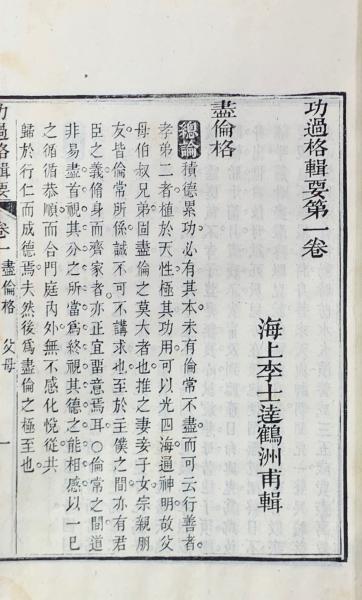 功過格輯要第一卷
海上李士達鶴洲甫輯
盡倫格
總論積德累功必有其本未有倫常不盡而可云行善者
孝弟二者植於天性極其功用可以光四海通神明故父
母伯叔兄弟固盡倫之莫大者也推之妻妾子女宗親朋
友皆倫常所係誠不可不講求也至於主僕之間亦有君
臣之義脩身而齊家者亦正宜畱意焉耳○倫常之間道
非易盡首視其分之所當爲終視其德之能相感以一巳
之循循恭順而合門庭內外無不感化悅從共
歸於行仁而成德焉夫然後爲盡倫之極至也
功過格輯要 卷一 盡倫格 父母 一